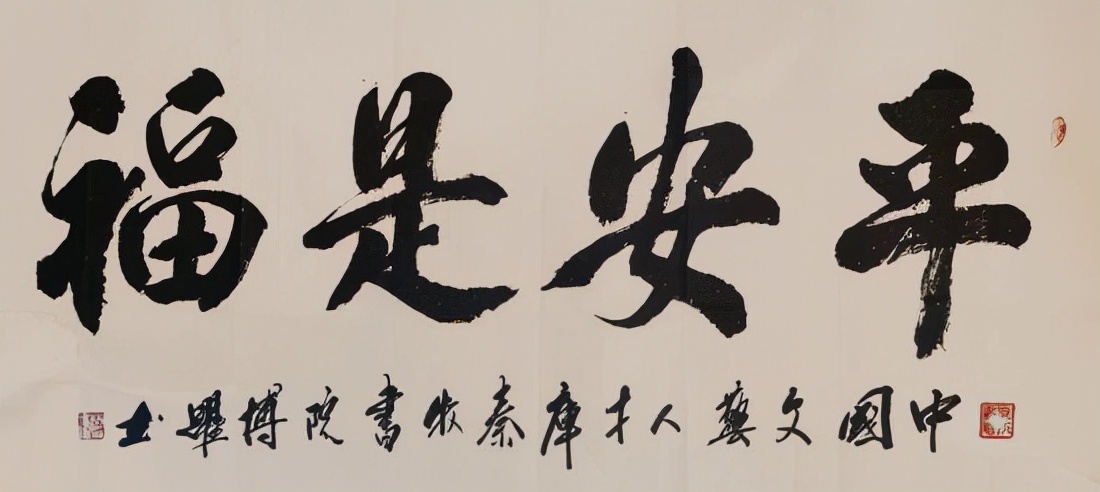 平安是福
中國文藝人才庫秦牧書院博